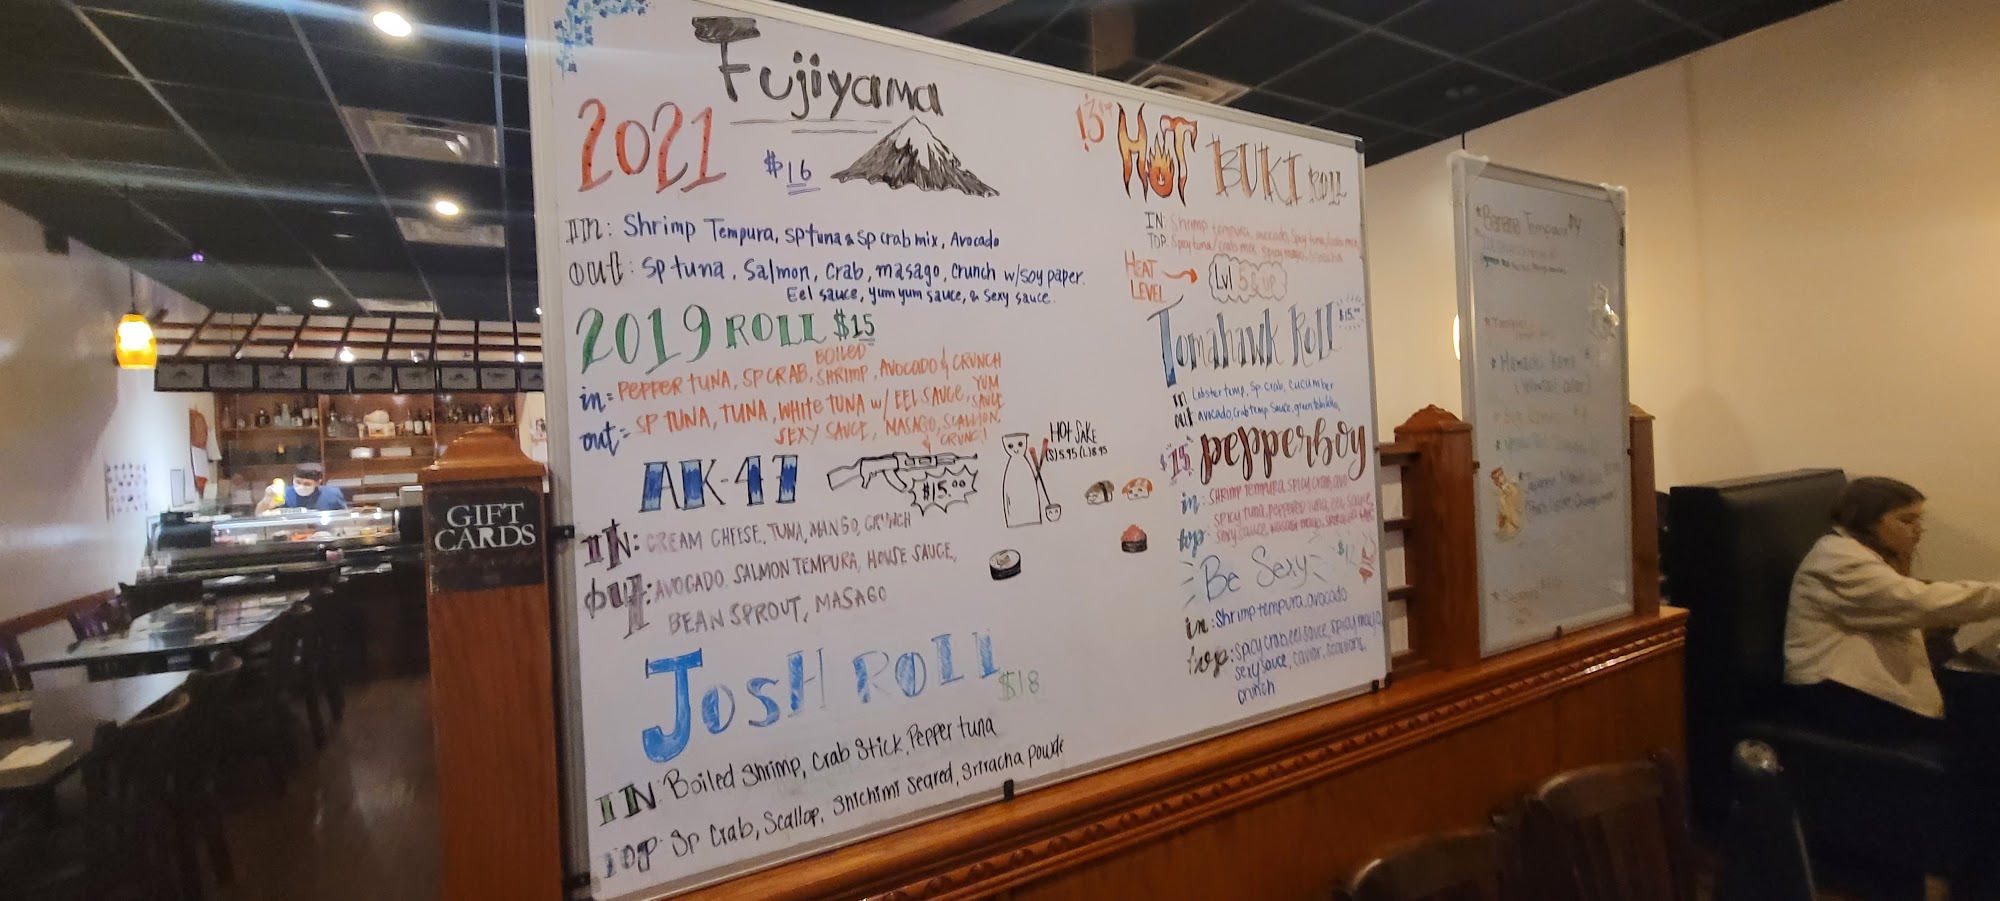 Fujiyama
2021
$16
IN: Shrimp Tempura, sptuna & sp crab mix, Avocado
out: sp tuna, Salmon, crab, masago, crunch w/soy paper.
Eel sauce, yum yum sauce, & sexy sauce.
2019 ROLL $15
BOILED
in= PEPPER TUNA, SP CRAB, SHRIMP, AVOCADO & CRUNCH
out= SP TUNA, TUNA, WHITE TUNA w/ EEL SAUCE, YUM SAUCE
SEXY SAUCE, MASAGO, SCALLION,
& CRUNCH
AK-47
$15.00
IN: CREAM CHEESE, TUNA, MANGO, CRUNCH
OUT: AVOCADO, SALMON TEMPURA, HOUSE SAUCE,
BEAN SPROUT, MASAGO
JOSH ROLL
$18
IN: Boiled Shrimp, Crab Stick, Pepper tuna
TOP: Sp Crab, Scallop, Shichimi Seared, Sriracha powde
HOT SAKE
(S) 5.95 (L) 8.95
13
HOT BUKI ROLL
IN: Shrimp tempura, avocado, Spicy tuna/crab mix
TOP: Spicy tuna/crab mix, spicy mayo, sriracha
HEAT LEVEL
Lvl 5 & up
Tomahawk Roll
$15.00
in Lobster temp, sp. crab, cucumber
out avocado, crab temp sauce, green
$15 pepperboy
in: SHRIMP TEMPURA, SPICY CRAB, AVO
top: SPICY TUNA, PEPPERED TUNA, EEL SAUCE,
SEXY SAUCE, WASABI MAYO
Be Sexy
$12
in: Shrimp tempura, avocado
top: spicy crab, eel sauce, spicy mayo,
sexy sauce, caviar, scallions,
crunch
GIFT
CARDS
Banana Tempura
Hamachi Kama